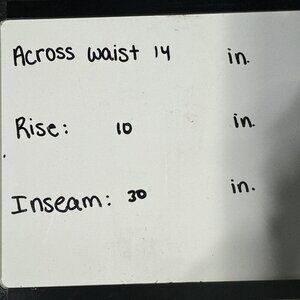 Across waist 14 in.
Rise: 10 in.
Inseam: 30 in.